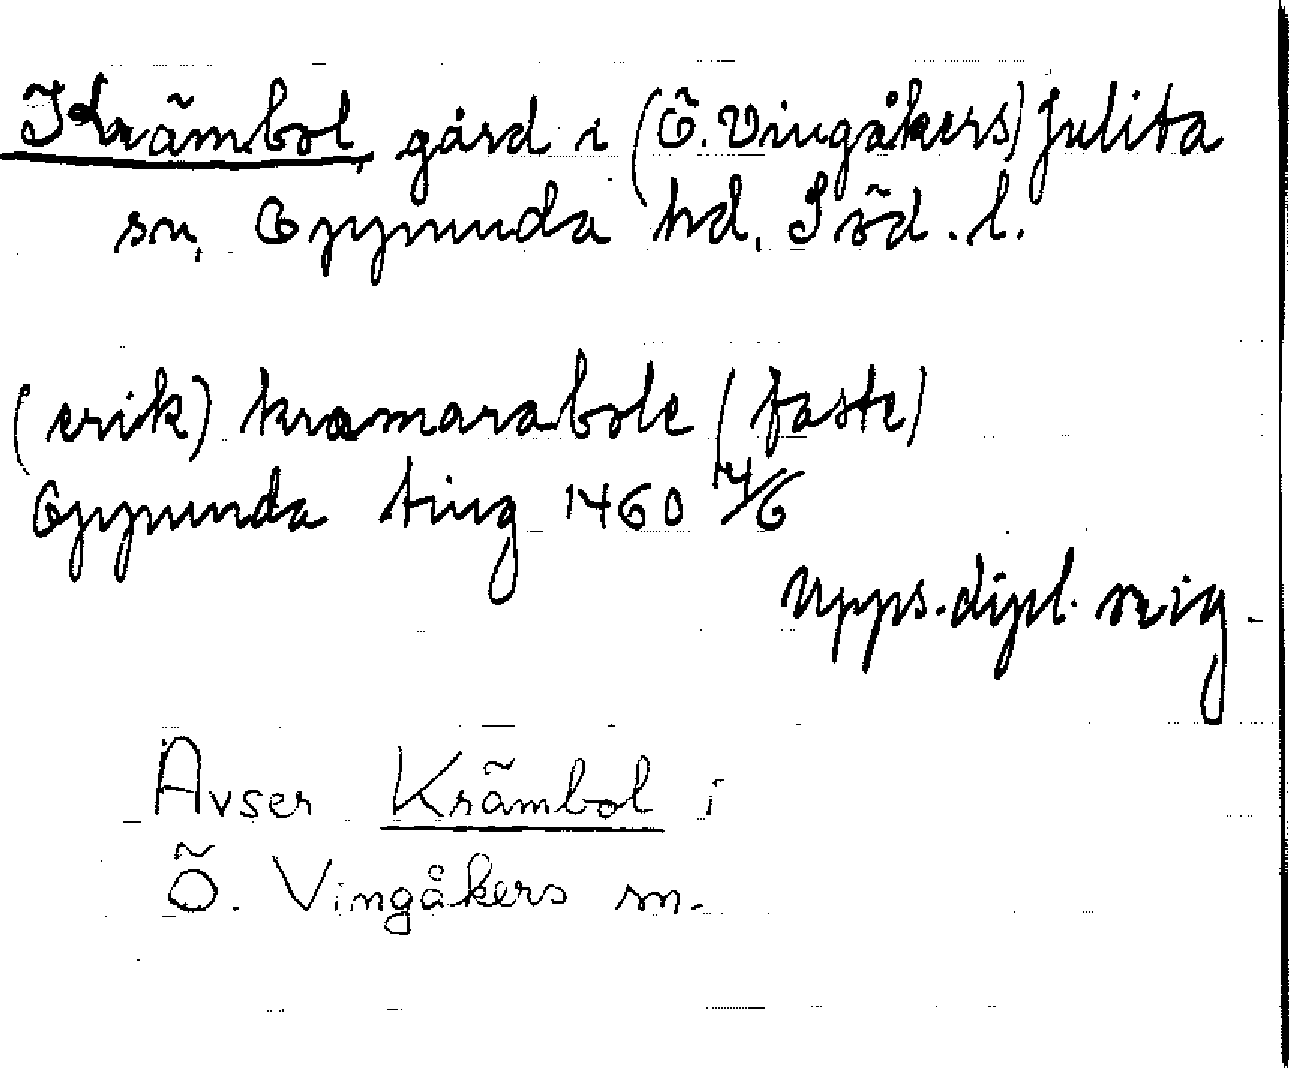 Krämbol, gård i (Ö. Vingåkers) Julita
sn, Oppunda hd, Söd. l.
(erik) kramarabole (faste)
Oppunda ting 1460 14/6
Upps. dipl. reig
Avser Krämbol i
Ö. Vingåkers sn.